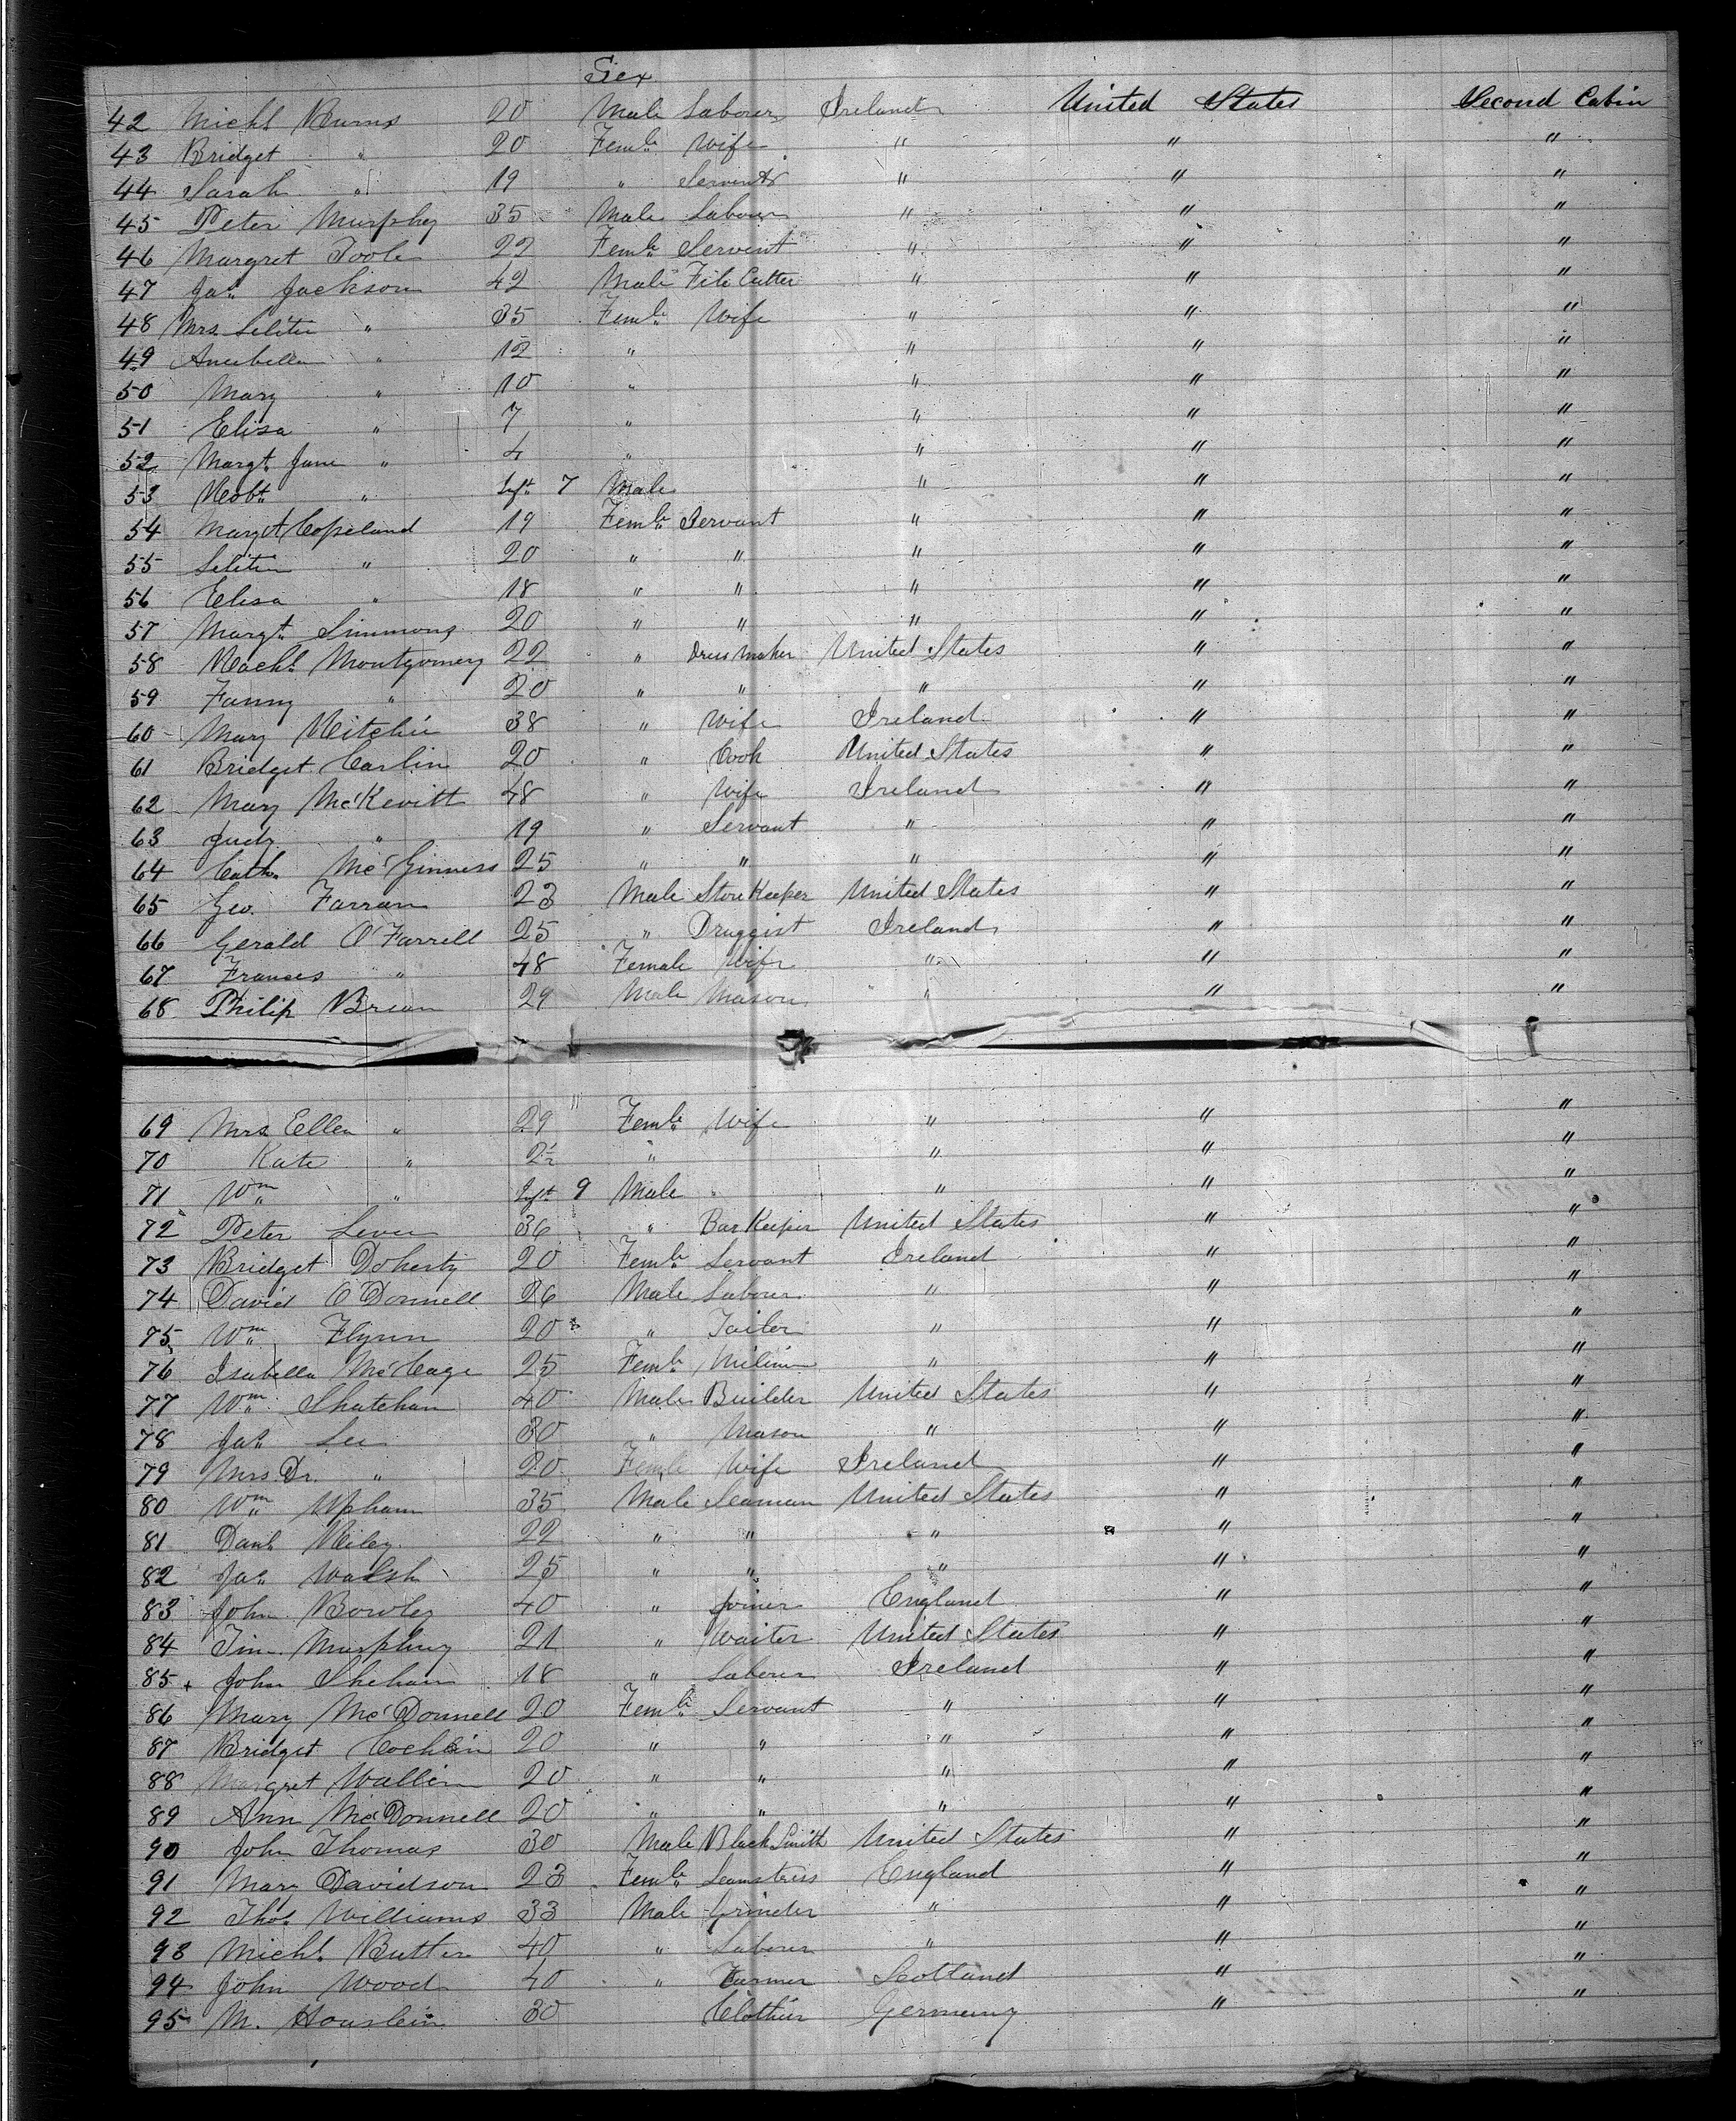 Sex
42 Michl Burns 20 Male Laborer Ireland United States Second Cabin
43 Bridget " 20 Femle Wife " " "
44 Sarah " 19 " Servant " " "
45 Peter Murphy 35 Male Laborer " " "
46 Margret Toole 22 Femle Servent " " "
47 Jas Jackson 42 Male File Cutter " " "
48 Mrs " 35 Femle Wife " " "
49 " 12 " " " "
50 Mary " 10 " " " "
51 Eliza " 7 " " " "
52 Margt Jane " 4 " " " "
53 Robt " Inft 7 Male " " "
54 Mary A Copeland 19 Femle Servant " " "
55 " 20 " " " " "
56 Elisa " 18 " " " " "
57 Margt Simmons 20 " " " " "
58 Rachl Montgomery 22 " Dress Maker United States " "
59 Fanny " 20 " " " " "
60 Mary Ritchie 38 " Wife Ireland " "
61 Bridget Carlin 20 " Cook United States " "
62 Mary McKevitt 48 " Wife Ireland " "
63 Judy " 19 " Servant " " "
64 Cath. McGinness 25 " " " " "
65 Geo. Farran 23 Male Store Keeper United States " "
66 Gerald O'Farrell 25 " Druggist Ireland " "
67 Franses " 48 Female Wife " " "
68 Philip Brean 29 Male Mason " " "
69 Mrs Ellen " 29 Femle Wife " " "
70 Kate " 2½ " " " "
71 Wm " Inft 9 Male " " "
72 Peter Lever 36 " Bar Keeper United States " "
73 Bridget Doherty 20 Femle Servant Ireland " "
74 David O'Donnell 26 Male Laborer " " "
75 Wm Flynn 20 " Tailer " " "
76 Isabella McCage 25 Femle " " "
77 Wm 40 Male Builder United States " "
78 Jas Lee 30 " Mason " " "
79 Mrs Dr. " 20 Femle Wife Ireland " "
80 Wm Upham 35 Male Seaman United States " "
81 Danl Riley 22 " " " " "
82 Jas Walsh 25 " " " " "
83 John Bowley 40 " Joiner England " "
84 Tim Murphy 21 " Waiter United States " "
85 + John Shehan 18 " Laborer Ireland " "
86 Mary McDonnell 20 Femle Servant " " "
87 Bridget Cochlin 20 " " " " "
88 Margret Wallin 20 " " " " "
89 Ann McDonnell 20 " " " " "
90 John Thomas 30 Male Black Smith United States " "
91 Mary Davidson 23 Femle Seamstress England " "
92 Thos Williams 33 Male Grinder " " "
93 Michl Butler 40 " Laborer " " "
94 John Wood 40 " Farmer Scotland " "
95 M. 30 Clothier Germany " "